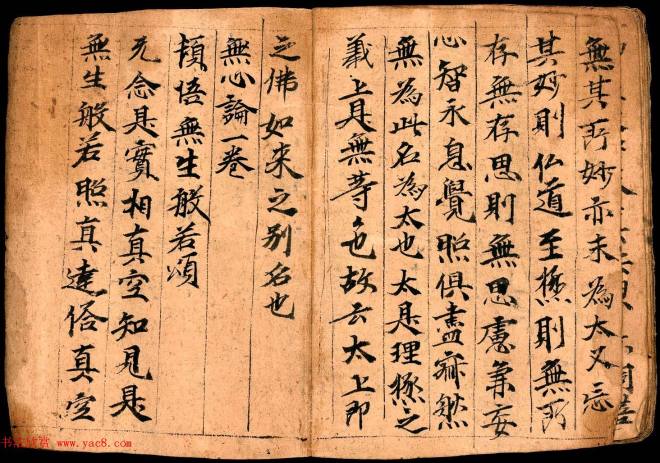 無其所妙亦未為太又忘
其妙則仏道至極則無所
存無存思則無思慮兼妄
心智永息覺照俱盡寂然
無為此名為太也太是理極之
義上是無等也故云太上即
之佛如来之别名也
無心論一卷
頓悟無生般若頌
无念是實相真空知見是
無生般若照真達俗真空
www.yac8.com